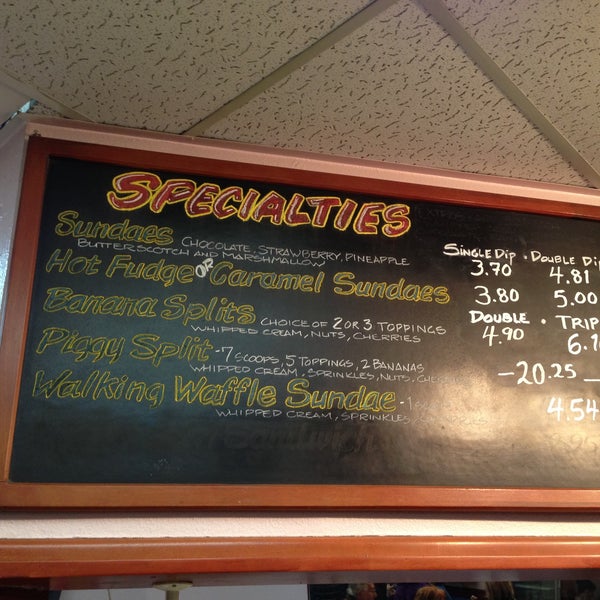 SPECIALTIES
Sundaes CHOCOLATE, STRAWBERRY, PINEAPPLE
BUTTERSCOTCH AND MARSHMALLOW
SINGLE DIP • DOUBLE DIP
3.70 4.81
Hot Fudge OR Caramel Sundaes 3.80 5.00
Banana Splits CHOICE OF 2 OR 3 TOPPINGS
WHIPPED CREAM, NUTS, CHERRIES
DOUBLE • TRIP
4.90 6.
Piggy Split - 7 SCOOPS, 5 TOPPINGS, 2 BANANAS
WHIPPED CREAM, SPRINKLES, NUTS, CHE
-20.25-
Walking Waffle Sundae - 1
WHIPPED CREAM, SPRINKLES
4.54